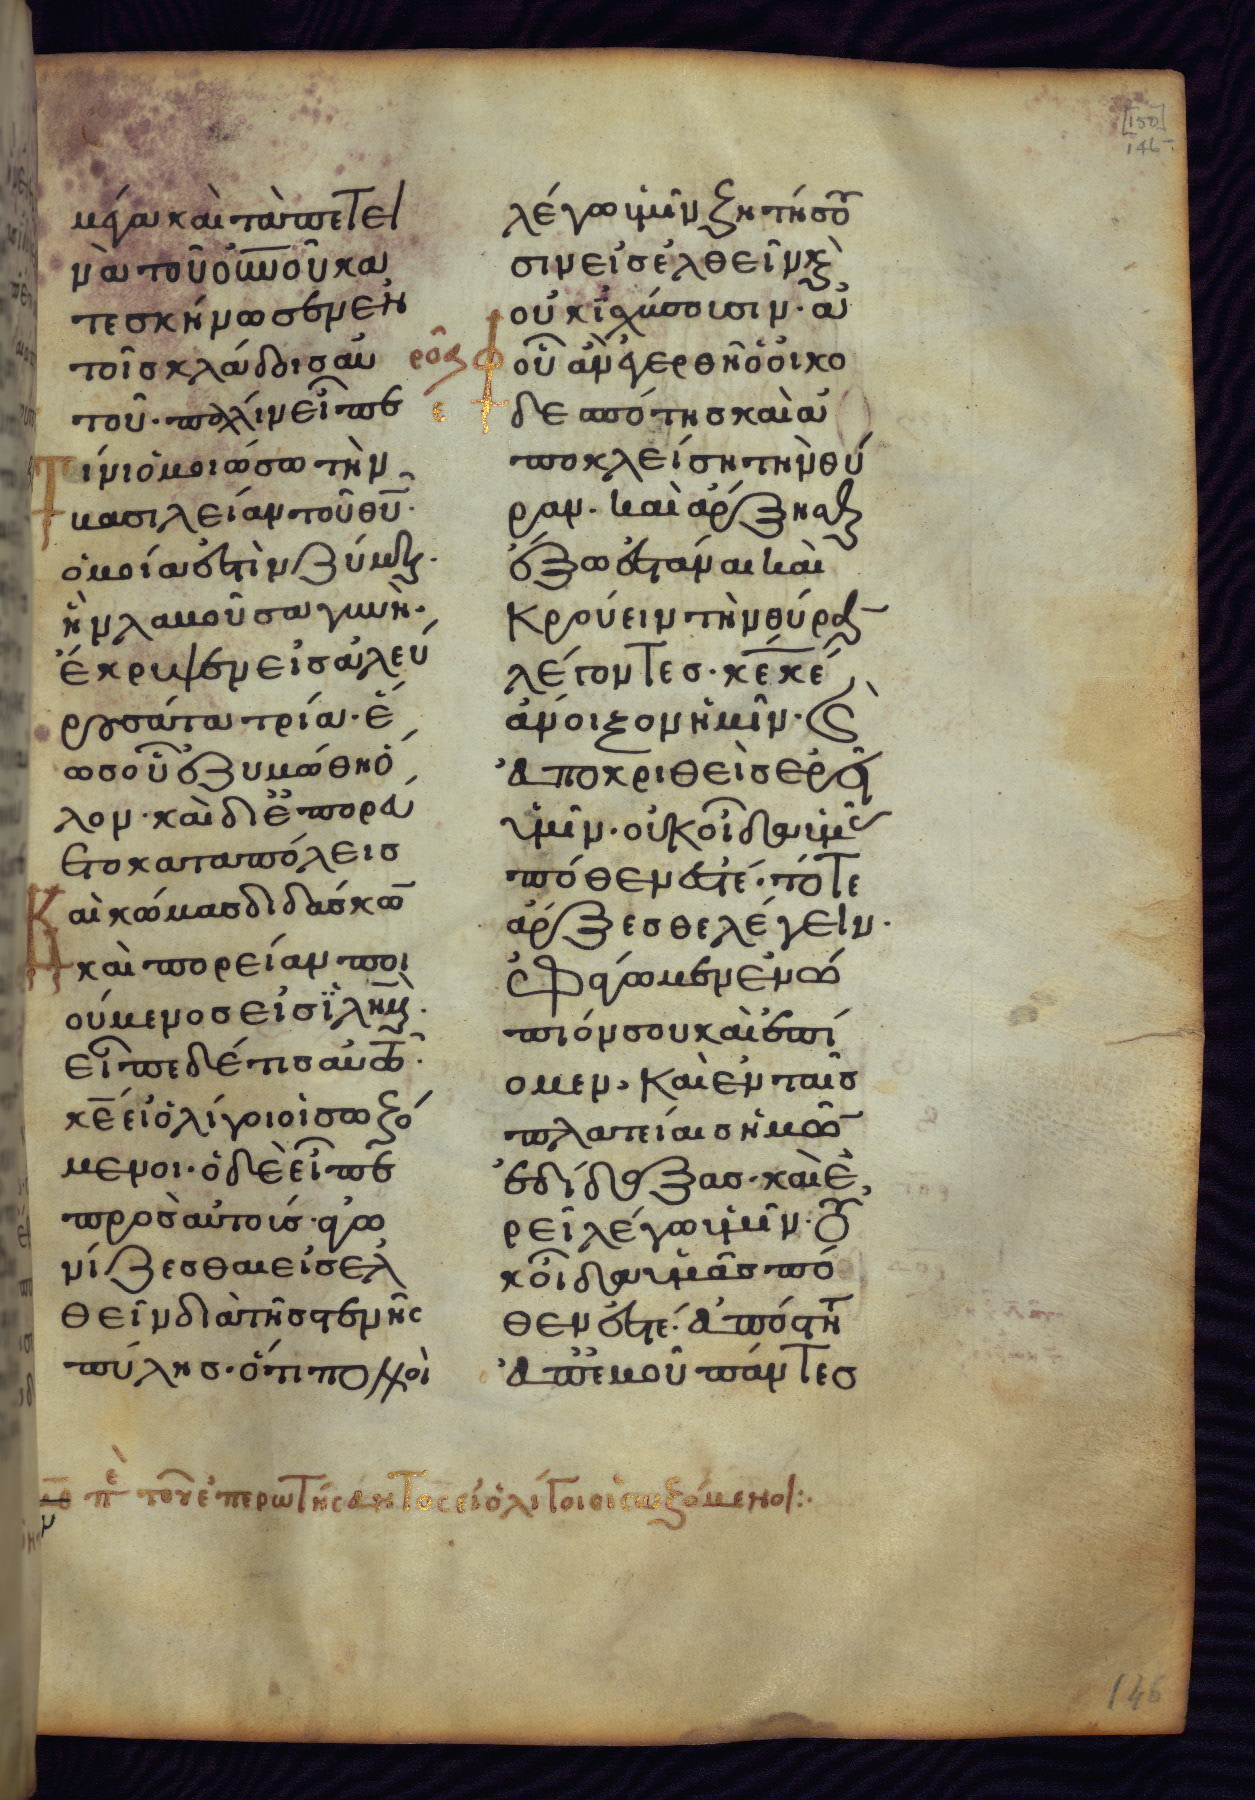 [150]
146
μέγα καὶ τὰ πετει
νὰ τοῦ οὐνοῦ κα
τεσκήνωσεν ἐν
τοῖς κλάδοις αὐ
τοῦ· πάλιν εἶπε
τίνι ὁμοιώσω τὴν
βασιλείαν τοῦ θῦ·
ὁμοία ἐστὶν ζύμῃ·
ἣν λαβοῦσα γυνὴ·
ἐκρυψεν εἰς ἀλεύ
ρου σάτα τρία· ἕ
ως οὗ ἐζυμώθη ὅ
λον· καὶ διεπορεύ
ετο κατα πόλεις
καὶ κώμας διδάσκω
καὶ πορείαν ποι
ούμενος εἰς ϊλημ·
εἶπε δέ τις αὐτῶ·
κε εἰ ὀλίγοι οἱ σωζό
μενοι· ὁ δὲ εἶπεν
πρὸς αὐτούς· ἀγω
νίζεσθαι εἰσελ
θεῖν διὰ τῆς στενῆς
πύλης· ὅτι πολλοὶ
λέγω ὑμῖν ζητήσου
σιν εἰσελθεῖν κ
οὐκ ἰσχύσουσιν· ἀφ
οὗ ἂν ἐγερθῆ ὁ οἰκο
δεσπότης καὶ ἀ
ποκλείση τὴν θύ
ραν· καὶ ἄρξησθε
ἔξω ἑστάναι καὶ
κρούειν τὴν θύραν
λέγοντες· κε κε
ἄνοιξον ἡμῖν· κ
ἀποκριθεὶς ἐρεῖ
ὑμῖν· οὐκ οἶδα ὑμᾶς
πόθεν ἐστέ· τότε
ἄρξεσθε λέγειν·
ἐφάγωμεν ἐνώ
πιόν σου καὶ ἐπί
ομεν· καὶ ἐν ταῖς
πλατείαις ἡμῶν
ἐδίδαξας· καὶ ἐ
ρεῖ λέγω ὑμῖν· οὐ
κ οἶδα ὑμᾶς πό
θεν ἐστέ· ἀπόστητε
ἀπ ἐμοῦ πάντες
πε τοῦ ἐπερωτήσαντος εἰ ὀλίγοι οἱ σωζόμενοι:·
146